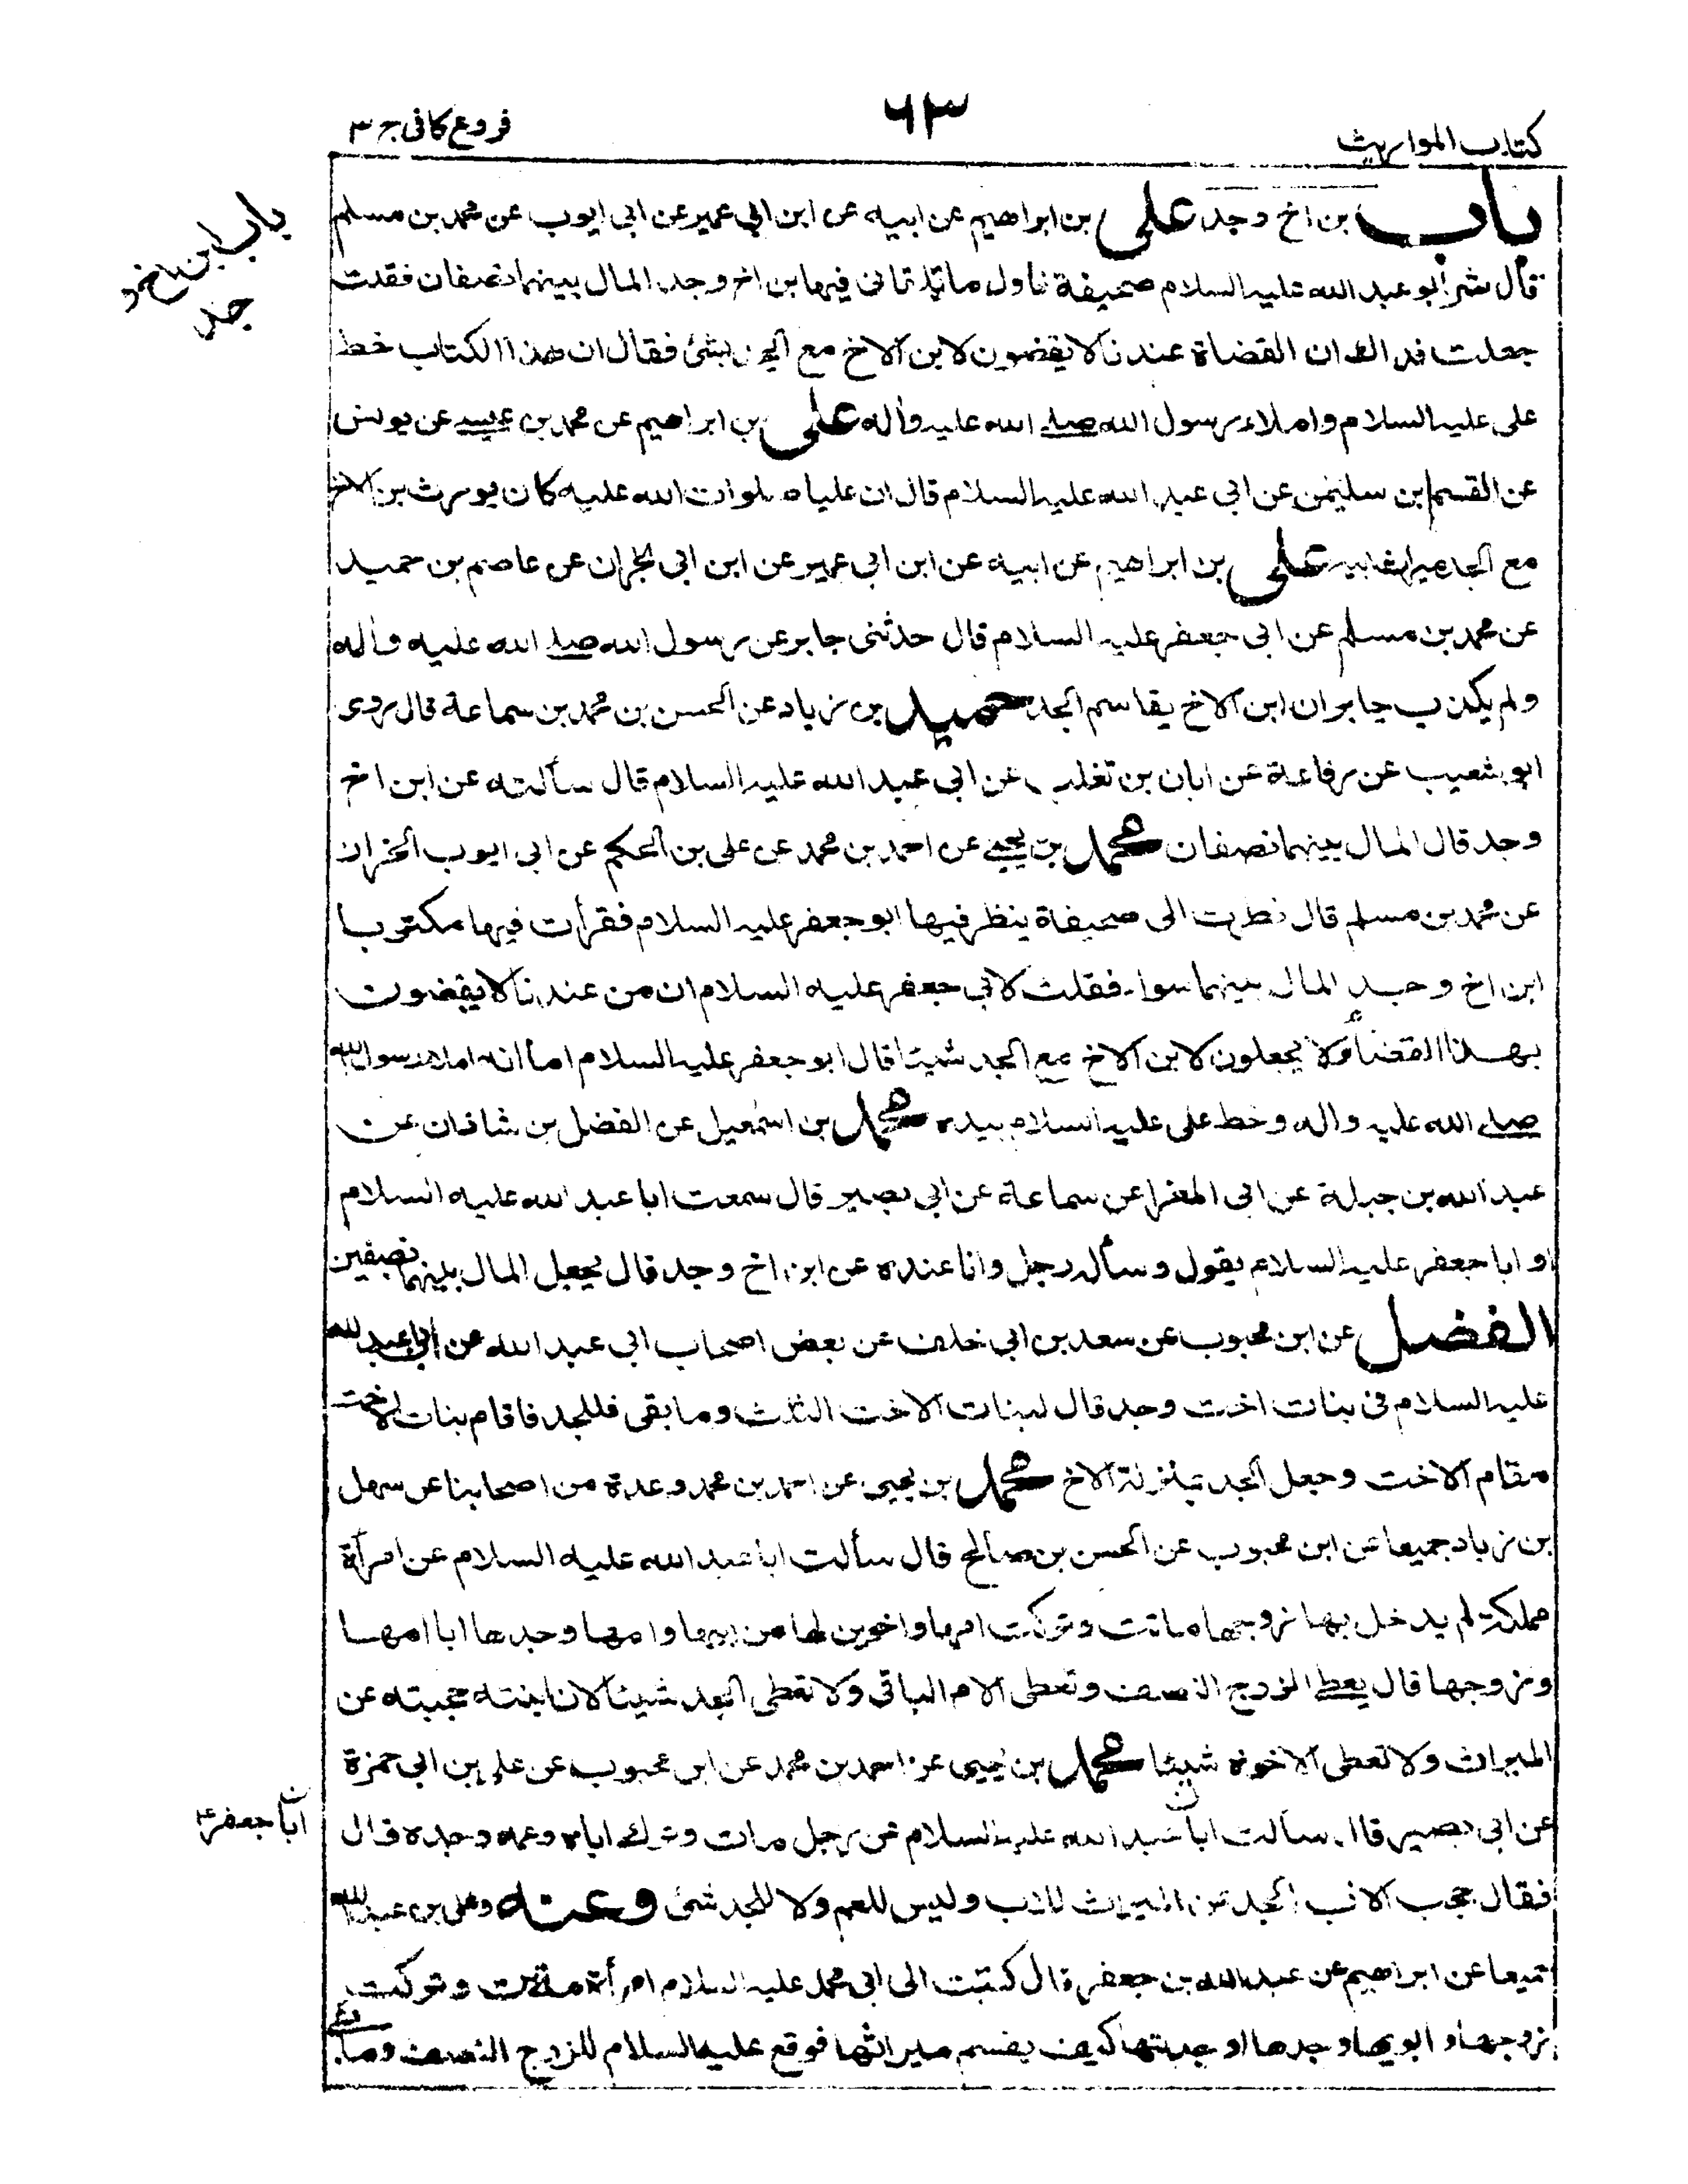 كتاب المواريث
٦٣
فروع كافى ج ٣
باب بن اخ وجد على بن ابراهيم عن ابيه عن ابن ابي عمير عن ابى ايوب عن محمد بن مسلم
باب ابن اخ و
جد
قال نشر أبو عبد الله عليه السلام صحيفة فاول ما تلقانى فيها ابن اخ وجد المال بينهما نصفان فقلت
جعلت فداك ان القضاة عندنا لا يقضون لابن الاخ مع الجد بشئ فقال ان هذا الكتاب خط
على عليه السلام واملاء رسول الله صلے الله عليه وآله على بن ابراهيم عن محمد بن عيسے عن يونس
عن القسم بن سليمن عن ابى عبد الله عليه السلام قال ان عليا صلوات الله عليه كان يورث بن الاخ
مع الجد ميراث ابيه على بن ابراهيم عن ابيه عن ابن ابى عمير عن ابن ابى نجران عن عاصم بن حميد
عن محمد بن مسلم عن ابى جعفر عليه السلام قال حدثنى جابر عن رسول الله صلے الله عليه وآله
ولم يكذب جابر ان ابن الاخ يقاسم الجد حميد بن زياد عن الحسن بن محمد بن سماعة قال روى
ابو شعيب عن رفاعة عن ابان بن تغلب عن ابى عبد الله عليه السلام قال سألته عن ابن اخ
وجد قال المال بينهما نصفان محمد بن يحيے عن احمد بن محمد عن على بن الحكم عن ابى ايوب الخزان
عن محمد بن مسلم قال نظرت الى صحيفة ينظر فيها ابو جعفر عليه السلام فقرأت فيها مكتوبا
ابن اخ وجد المال بينهما سواء فقلت لابى جعفر عليه السلام ان من عندنا لا يقضون
بهذا القضاء ولا يجعلون لابن الاخ مع الجد شيئا قال ابو جعفر عليه السلام اما انه املاء رسول الله
صلے الله عليه واله وخط على عليه السلام بيده محمد بن اسمعيل عن الفضل بن شاذان عن
عبد الله بن جبلة عن ابى المغرا عن سماعة عن ابى بصير قال سمعت ابا عبد الله عليه السلام
او ابا جعفر عليه السلام يقول وسأله رجل وانا عنده عن ابن اخ وجد قال يجعل المال بينهما نصفين
الفضل عن ابن محبوب عن سعد بن ابى خلف عن بعض اصحاب ابى عبد الله عن ابى عبد الله
عليه السلام فى بنات اخت وجد قال لبنات الاخت الثلث وما بقى فللجد فاقام بنات الاخت
مقام الاخت وجعل الجد بمنزلة الاخ محمد بن يحيى عن احمد بن محمد وعدة من اصحابنا عن سهل
بن زياد جميعا عن ابن محبوب عن الحسن بن صالح قال سألت ابا عبد الله عليه السلام عن امرأة
مملكة لم يدخل بها زوجها ماتت وتركت امها واخوين لها من ابيها وامها وجدها ابا امها
وزوجها قال يعطے الزوج النصف وتعطى الام الباقى ولا تعطى الجد شيئا لان ابنته حجبته عن
الميراث ولا تعطى الاخوة شيئا محمد بن يحيى عن احمد بن محمد عن ابن محبوب عن على بن ابى حمزة
عن ابى بصير قال سألت ابا عبد الله عليه السلام عن رجل مات وترك اباه وعمه وجده قال
ن
ابا جعفر ع
فقال حجب الاب الجد عن الميراث للاب وليس للعم ولا للجد شئ وعنه وعلى بن عبد الله
جميعا عن ابراهيم عن عبد الله بن جعفر قال كتبت الى ابى محمد عليه السلام امرأة ماتت وتركت
زوجها و ابويها وجدها او جدتها كيف يقسم ميراثها فوقع عليه السلام للزوج النصف وما